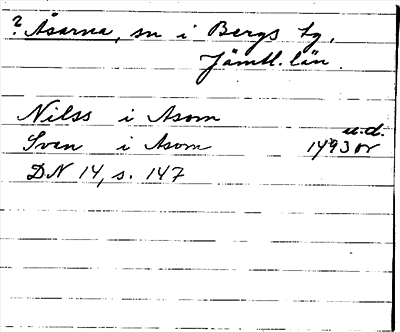 ? Åsarna, sn i Bergs tg,
Jämtl. län.
Nilss i Asom
u.d.
Sven i Asom 1493 or
DN 14, s. 147